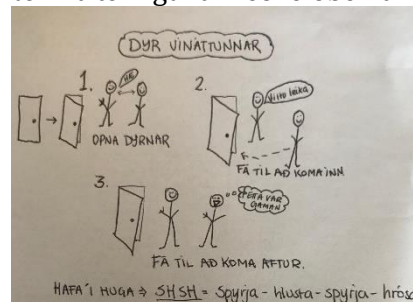 DYR VINÁTTUNNAR
1.
OPNA DYRNAR
2.
Viltu leika
FÁ TIL AÐ KOMA INN
3.
ÞETTA VAR
GAMAN
FÁ TIL AÐ KOMA AFTUR.
HAFA Í HUGA ⇒ SHSH = Spyrja - hlusta - spyrja -